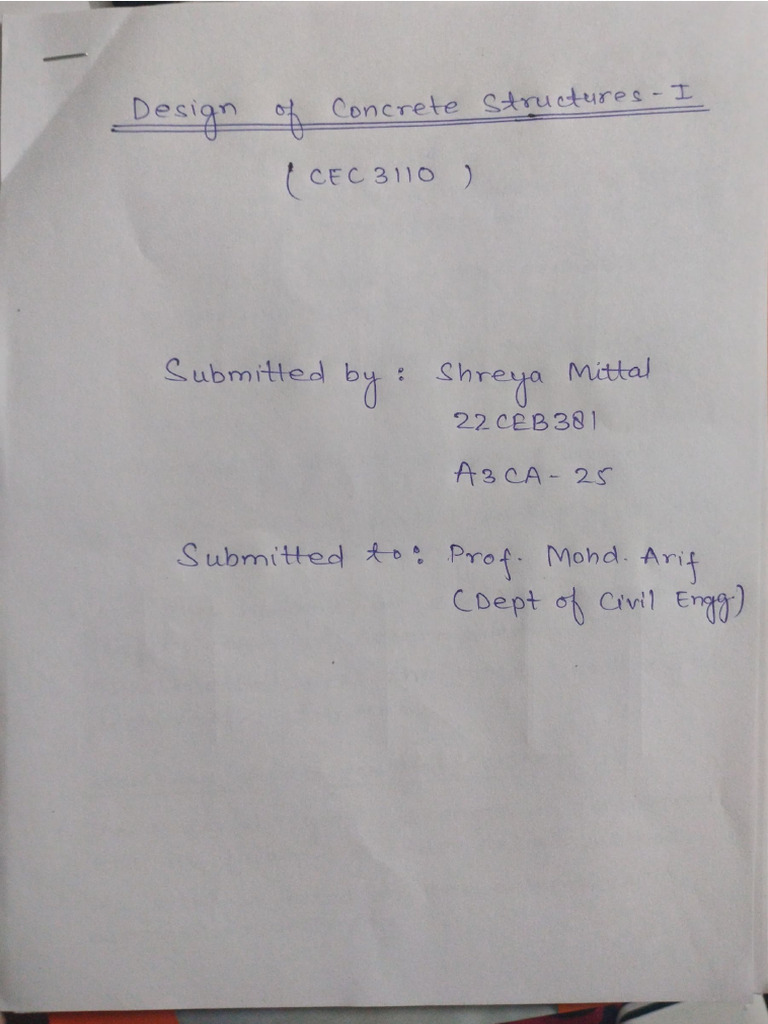 Design of Concrete Structures - I
( CEC 3110 )
Submitted by : Shreya Mittal
22CEB381
A3CA - 25
Submitted to : Prof. Mohd. Arif
(Dept of Civil Engg.)